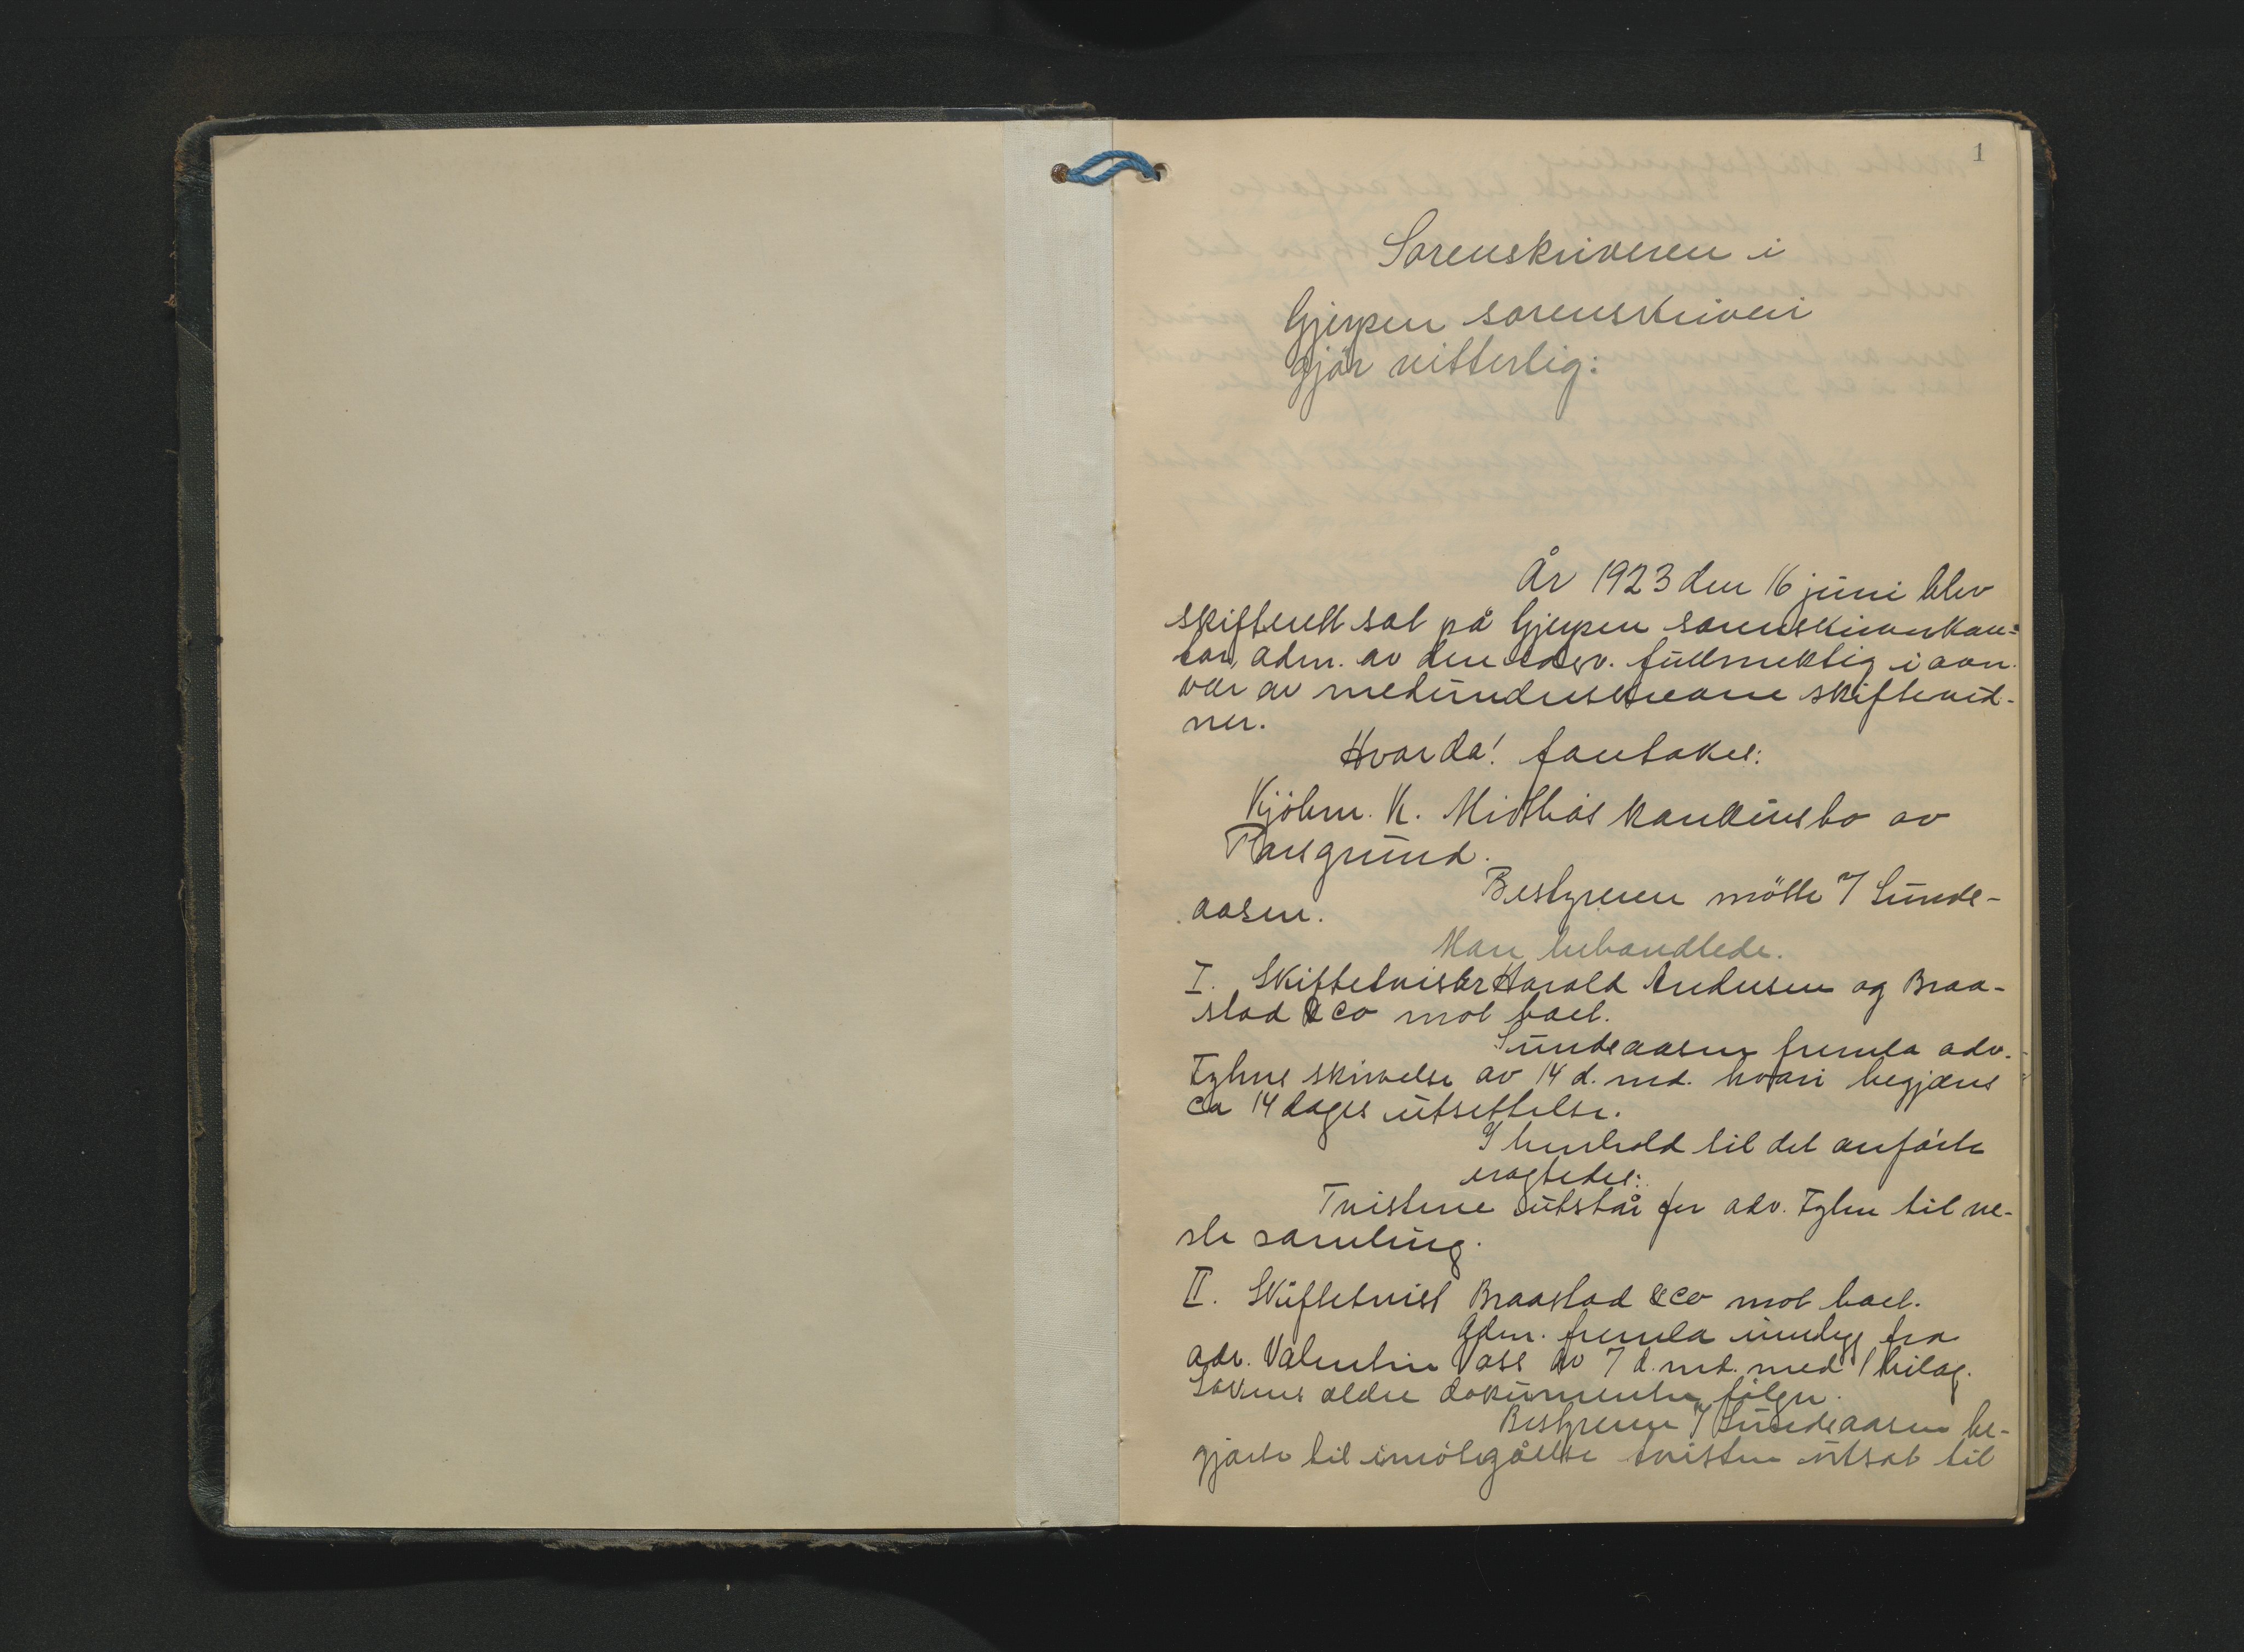 1
Sorenskriveren i
Gjerpen sorenskriveri
gjör vitterlig:
År 1923 den 16 juni blev
skifterett sat på Gjerpen sorenskriverkon=
tor, adm. av den edsv. fullmektig i nær
vær av medundertegnede skiftevid-
ner.
Hvorda! foretokes:
Kjöbm. K. Midtbös konkursbo av
Porsgrund.
Bestyreren mötte v/ Sunde-
aasen.
Man behandlede.
I. Skiftetvister Harald Andersen og Braa-
stad & Co mot boet.
Sundeaasen fremla adv.
skrivelse av 14 d. md. hvori begjæres
ca 14 dages utsettelse.
I henhold til det anförte
eragtedes:
Tvistene utstår for adv. til ne-
ste samling.
II. Skiftetvist Braastad & Co mot boet.
Adm. fremla innlegg fra
adv. Valentin Voss av 7 d. md. med 1 bilag.
Sakens ældre dokumenter fölger.
Bestyreren v/ Sundeaasen be-
gjærte til imötegåelse tvisten utsat til